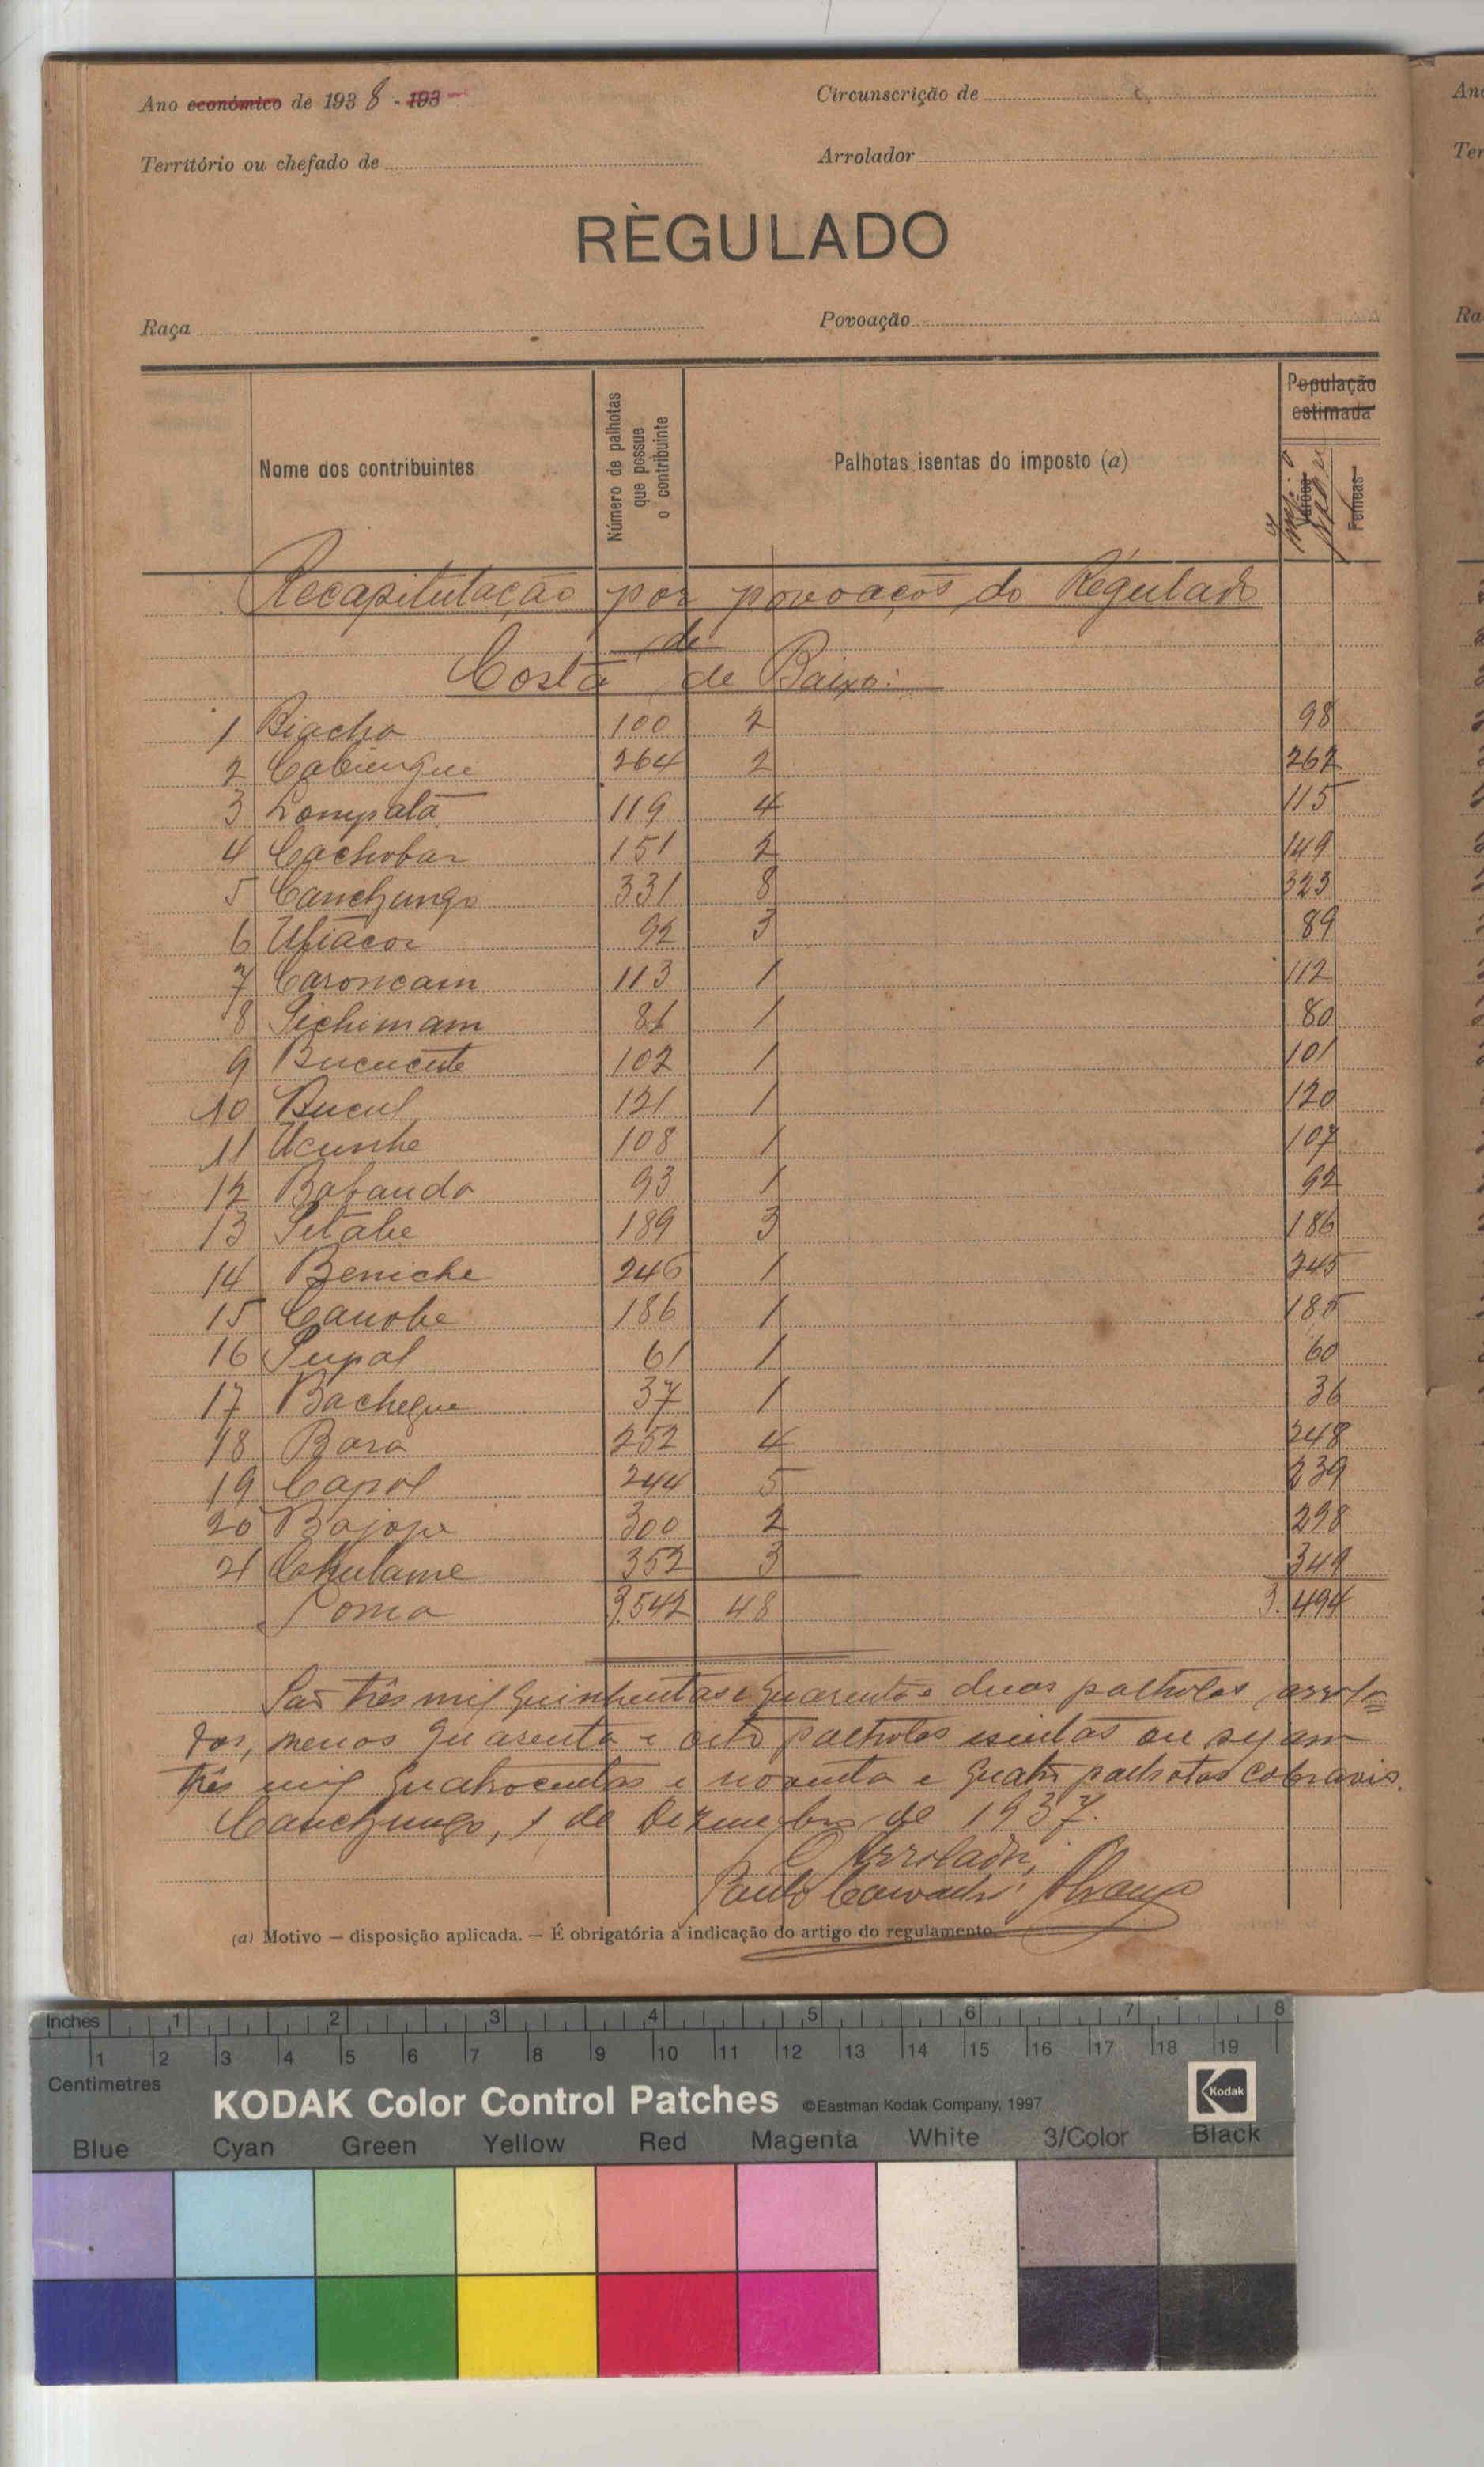 Ano económico de 1938 - 193
Circunscrição de
Território ou chefado de
Arrolador
RÈGULADO
Raça
Povoação
Nome dos contribuintes
Número de palhotas que possue o contribuinte
Palhotas isentas do imposto (a)
População estimada
Varões
Femeas
Recapitulação por povoaços do Régulado
de
Costa de Baixo:
1 Biacha 100 2 98
2 Cabiengue 264 2 262
3 Lompatã 119 4 115
4 Cachobar 151 2 149
5 Canchungo 331 8 323
6 Utiacor 92 3 89
7 Caroncam 113 1 112
8 Pichimam 81 1 80
9 Bucucute 102 1 101
10 Bucul 121 1 120
11 Ucunhe 108 1 107
12 Babanda 93 1 92
13 Petabe 189 3 186
14 Beniche 246 1 245
15 Canobe 186 1 185
16 Pupal 61 1 60
17 Bacheque 37 1 36
18 Bara 252 4 248
19 Capol 244 5 239
20 Bajope 300 2 298
21 Chulame 352 3 349
Soma 3.542 48 3.494
São três mil quinhentas e quarenta e duas palhotas arrola=
das, menos quarenta e oito palhotas isentas ou sejam
três mil quatrocentas e noventa e quatro palhotas cobraveis.
Canchungo, 1 de Dezembro de 1937.
O Arrolador,
Paulo
(a) Motivo — disposição aplicada. — É obrigatória a indicação do artigo do regulamento.
Inches 1 2 3 4 5 6 7 8
1 2 3 4 5 6 7 8 9 10 11 12 13 14 15 16 17 18 19
Centimetres
KODAK Color Control Patches ©Eastman Kodak Company, 1997 Kodak
Blue Cyan Green Yellow Red Magenta White 3/Color Black